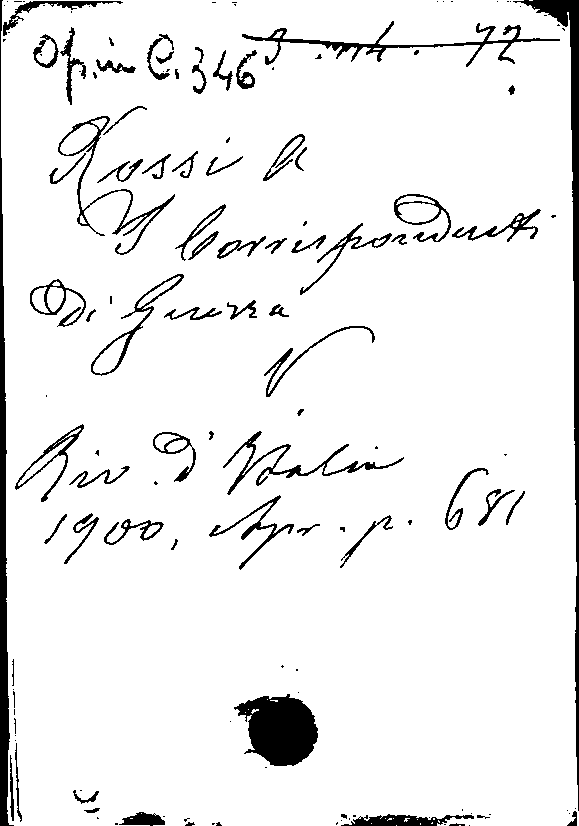 Op. in C. 346
Rossi A
I Corrispondenti
di Guerra
V
Riv. d'Italia
1900, Apr. p. 681